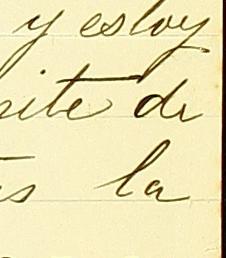 y estoy
rite de
s la